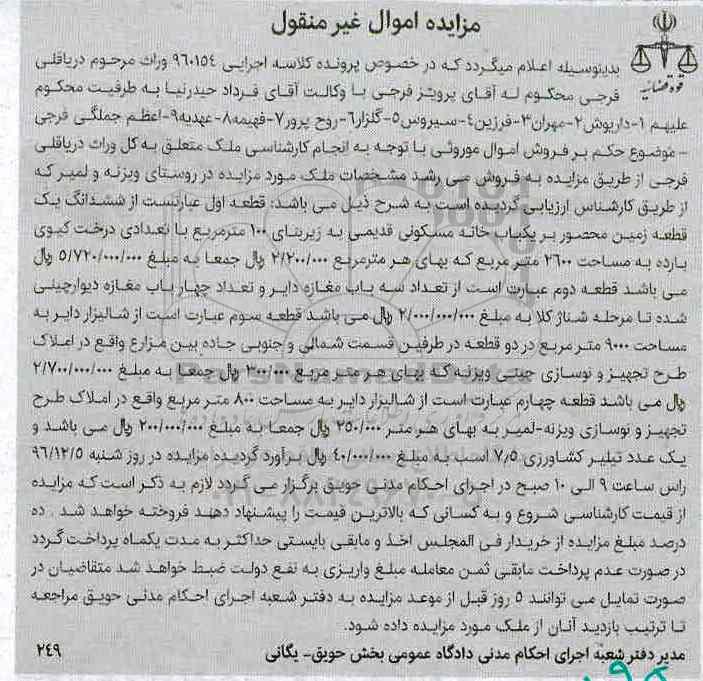 مزایده اموال غیر منقول
قوه قضائیه
بدینوسیله اعلام میگردد که در خصوص پرونده کلاسه اجرایی ۹۶۰۱۵۴ وراث مرحوم دریاقلی
فرجی محکوم له آقای پرویز فرجی با وکالت آقای فرداد حیدرنیا به طرفیت محکوم
علیهم ۱-داریوش۲-مهران۳-فرزین۴-سیروس۵-گلزار۶-روح پرور۷-فهیمه۸-عهدیه۹-اعظم جملگی فرجی
- موضوع حکم بر فروش اموال موروثی با توجه به انجام کارشناسی ملک متعلق به کل وراث دریاقلی
فرجی از طریق مزایده به فروش می رشد مشخصات ملک مورد مزایده در روستای ویزنه و لمیر که
از طریق کارشناس ارزیابی گردیده است به شرح ذیل می باشد: قطعه اول عبارتست از ششدانگ یک
قطعه زمین محصور بر یکباب خانه مسکونی قدیمی به زیربنای ۱۰۰ مترمربع با تعدادی درخت کیوی
بارده به مساحت ۲۶۰۰ متر مربع که بهای هر مترمربع ۲/۲۰۰/۰۰۰ ریال جمعا به مبلغ ۵/۷۲۰/۰۰۰/۰۰۰ ریال
می باشد قطعه دوم عبارت است از تعداد سه باب مغازه دایر و تعداد چهار باب مغازه دیوارچینی
شده تا مرحله شناژ کلا به مبلغ ۲/۰۰۰/۰۰۰/۰۰۰ ریال می باشد قطعه سوم عبارت است از شالیزار دایر به
مساحت ۹۰۰۰ متر مربع در دو قطعه در طرفین قسمت شمالی و جنوبی جاده بین مزارع واقع در املاک
طرح تجهیز و نوسازی جیتی ویزنه که بهای هر متر مربع ۳۰۰/۰۰۰ ریال جمعا به مبلغ ۲/۷۰۰/۰۰۰/۰۰۰
ریال می باشد قطعه چهارم عبارت است از شالیزار دایر به مساحت ۸۰۰ متر مربع واقع در املاک طرح
تجهیز و نوسازی ویزنه-لمیر به بهای هر متر ۲۵۰/۰۰۰ ریال جمعا به مبلغ ۲۰۰/۰۰۰/۰۰۰ ریال می باشد و
یک عدد تیلیر کشاورزی ۷٫۵ اسب به مبلغ ۴۰/۰۰۰/۰۰۰ ریال برآورد گردیده مزایده در روز شنبه ۹۶/۱۲/۵
راس ساعت ۹ الی ۱۰ صبح در اجرای احکام مدنی حویق برگزار می گردد لازم به ذکر است که مزایده
از قیمت کارشناسی شروع و به کسانی که بالاترین قیمت را پیشنهاد دهند فروخته خواهد شد . ده
درصد مبلغ مزایده از خریدار فی المجلس اخذ و مابقی بایستی حداکثر به مدت یکماه پرداخت گردد
در صورت عدم پرداخت مابقی ثمن معامله مبلغ واریزی به نفع دولت ضبط خواهد شد متقاضیان در
صورت تمایل می توانند ۵ روز قبل از موعد مزایده به دفتر شعبه اجرای احکام مدنی حویق مراجعه
تا ترتیب بازدید آنان از ملک مورد مزایده داده شود.
مدیر دفتر شعبه اجرای احکام مدنی دادگاه عمومی بخش حویق- یگانی ۲۴۹